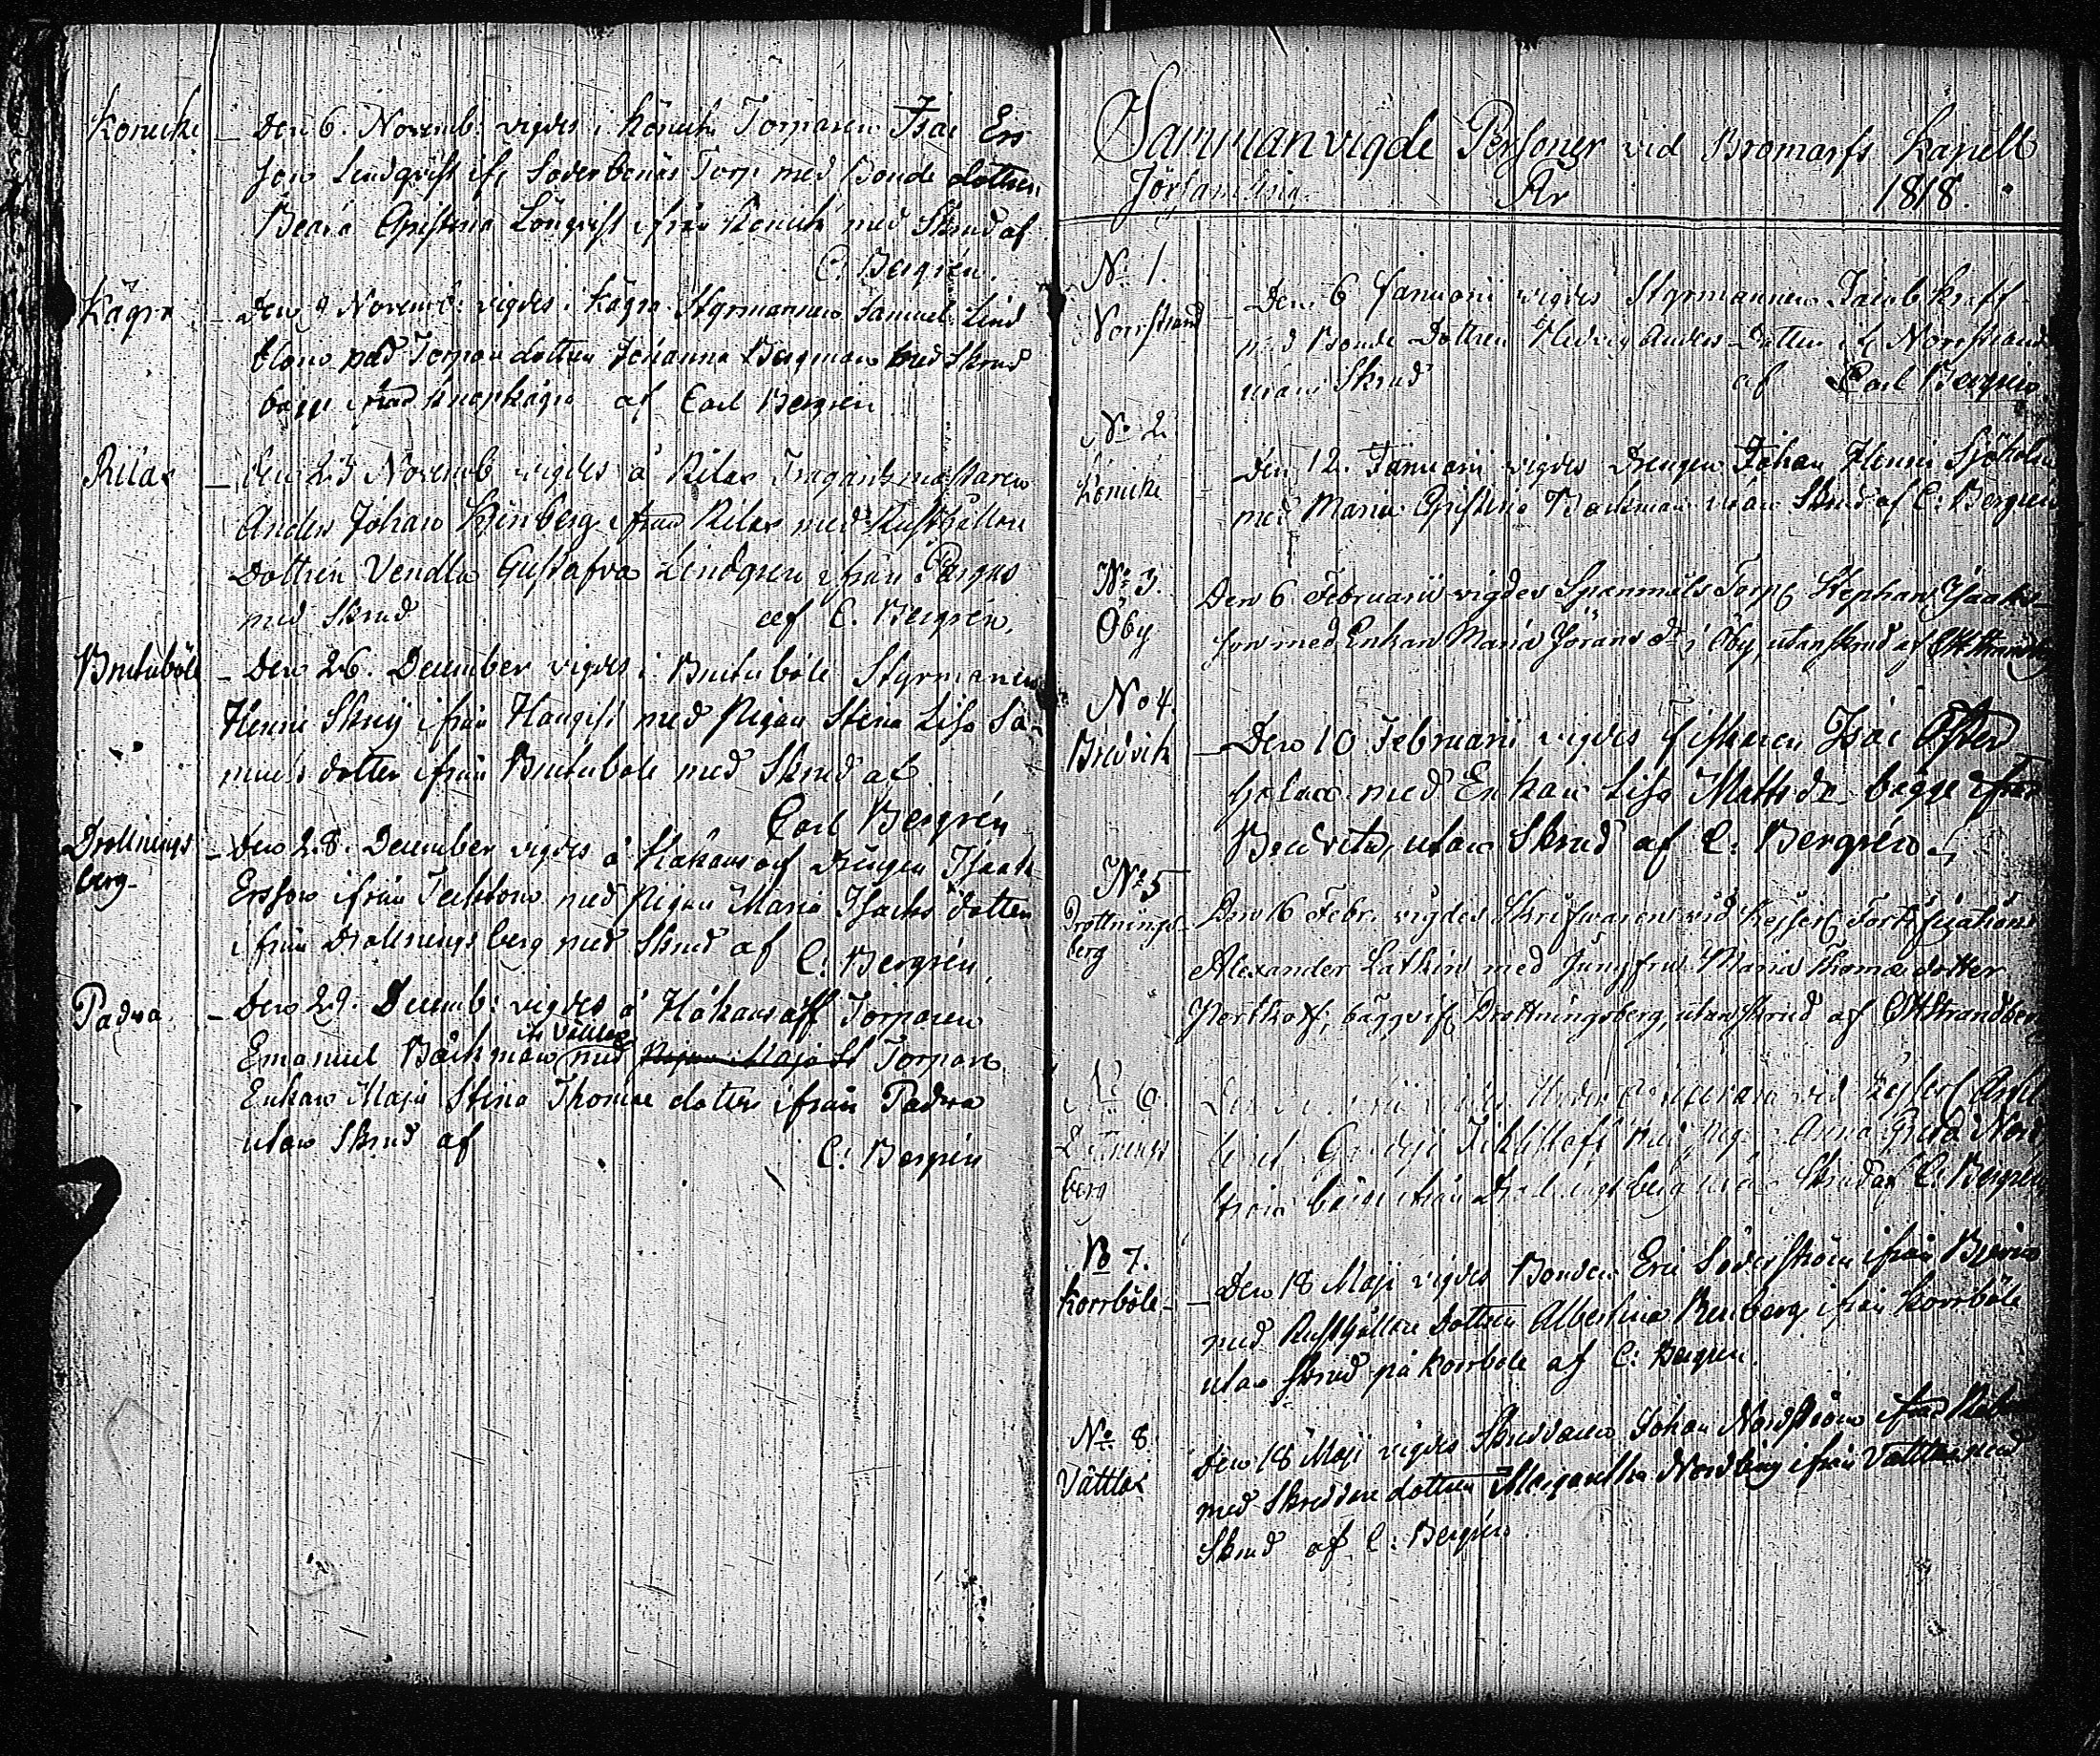 Konicki – Den 6. Novemb: vigdes i Konicki Torparen Isac Ers
son Lindqvist ifr Söderbonäs Torp med Bonde dottren
Beata Christina Lönqvist ifrån Konicki med Skrud af
C: Bergrén.
Kägra – Den 9 Novemb: vigdes i Kägra Styrmannen Samuel Lind
blom med Torpare dottren Johanna Bergman med Skrud
bägge ifrån Knopkägra af Carl Bergrén
Rilax – Den 23 Novemb vigdes å Rilax
Anders Johan Kihnberg ifrån Rilax med Rusthållare
Dottren Vendla Gustafva Lindgren ifrån Pargas
med Skrud af C. Bergrén,
Brutuböle – Den 26. December vigdes i Brutuböle Styrmannen
Henric Skrij ifrån Hangist med Pigan Stina Lisa Sa-
muels dotter ifrån Brutuböle med Skrud af
Carl Bergrén
Drottnings
berg – Den 28. December vigdes å Håkansarf Drängen Isaak
Ersson ifrån Tecktom med Pigan Maria Isacks dotter
ifrån Drottningsberg med Skrud af C: Bergrén,
Padva – Den 29. Decemb: vigdes å Håkansarff Torparen
Emanuel Bäckman fr Vättlax med Torpare
Enkan Maja Stina Thomæ dotter ifrån Padva
utan Skrud af C: Bergrén
Sammanvigde Personer vid Bromarfs Kapell
Församling. År 1818.
No 1.
Norrstrand – Den 6 Januarii vigdes Styrmannen Jacob Kraft
med Bonde Dottren Hedvig Anders Dotter ifr Norrstrand
utan Skrud af Carl Bergrén
No 2.
Konicki – Den 12. Januarii vigdes Drengen Johan Henric Sjöholm
med Maria Christina Bäckman utan Skrud af C: Bergrén
No 3.
Öby Den 6 Februarii vigdes Spanmåls Torp Stephan Isaaks-
son med Enkan Maria Jörans dr i Öby, utan skrud af Ott Strandberg
No 4.
Bredvik – Den 10 Februarii vigdes fiskaren Isac Öster
holm med Enkan Lisa Matts dr bägge ifrån
Bredvik, utan Skrud af C: Bergrén
No 5
Drottnings-
berg Den 16 Febr. vigdes Skrifvaren vid Kejserl Fortification
Alexander Latkin med Jungfru Maria Thomæ dotter
bägge ifr Drottningsberg, utan skrud af Ott Strandberg
No 6.
berg Anna Greta Nord
ström bägge ifrån Drottningsberg utan Skrud af C: Bergrén
No 7.
Korrböle – Den 18 Maji vigdes Bonden Eric Söderström ifrån
med Rusthållare Dottren Albertina Renberg ifrån Korrböle
utan skrud på Korrböle af C: Bergrén.
No 8.
Vättlax Den 18 Maji vigdes Skreddaren Johan Nordström ifrån
med Skreddare dottren Margaretha Nordberg ifrån Vättlax med
Skrud af C: Bergrén